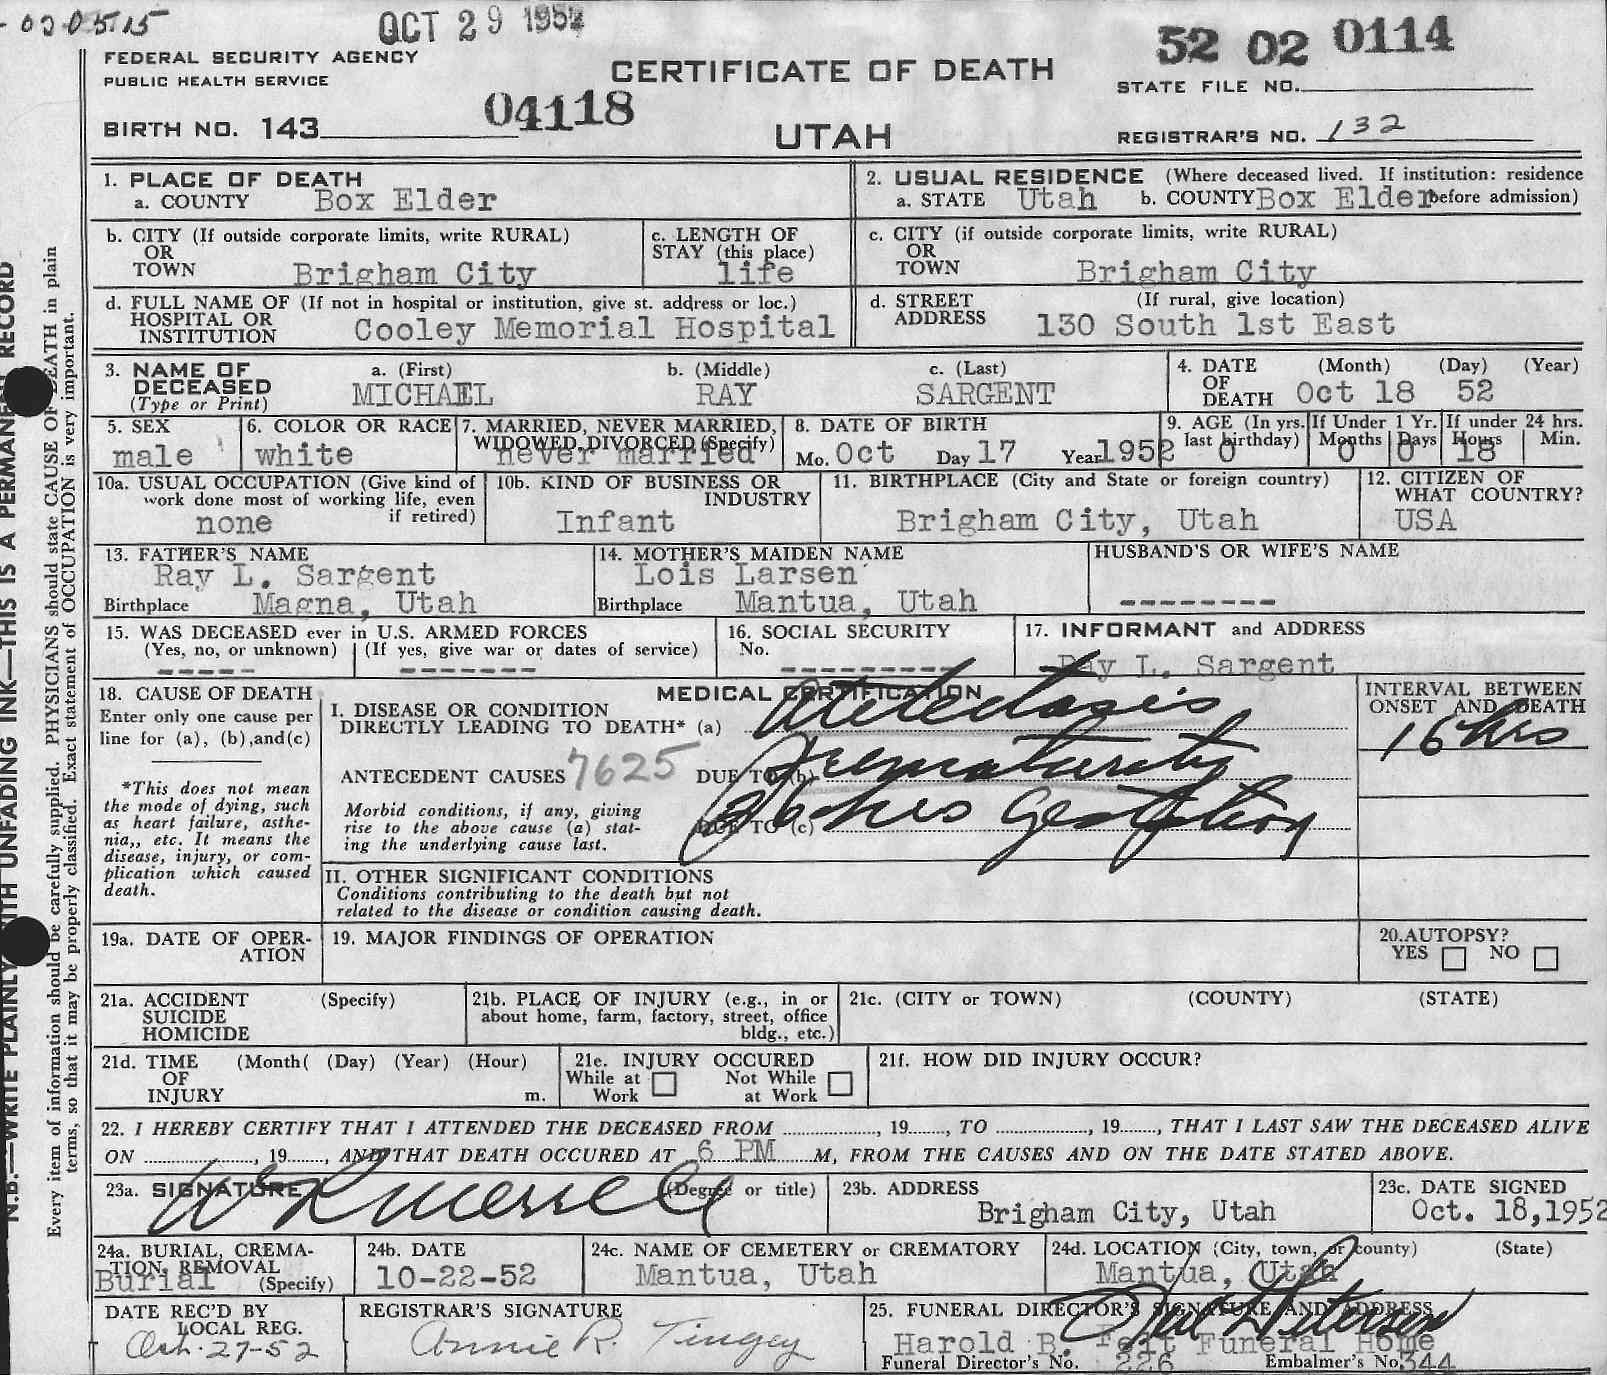 020515
OCT 29 1952
52 02 0114
FEDERAL SECURITY AGENCY
PUBLIC HEALTH SERVICE
CERTIFICATE OF DEATH
STATE FILE NO.
BIRTH NO. 143
04118
UTAH
REGISTRAR'S NO. 132
1. PLACE OF DEATH
a. COUNTY Box Elder
2. USUAL RESIDENCE (Where deceased lived. If institution: residence
a. STATE Utah b. COUNTY Box Elder before admission)
b. CITY (If outside corporate limits, write RURAL)
OR
TOWN Brigham City
c. LENGTH OF
STAY (this place)
life
c. CITY (if outside corporate limits, write RURAL)
OR
TOWN Brigham City
d. FULL NAME OF (If not in hospital or institution, give st. address or loc.)
HOSPITAL OR
INSTITUTION Cooley Memorial Hospital
d. STREET (If rural, give location)
ADDRESS 130 South 1st East
3. NAME OF
DECEASED
(Type or Print)
a. (First)
MICHAEL
b. (Middle)
RAY
c. (Last)
SARGENT
4. DATE (Month) (Day) (Year)
OF
DEATH Oct 18 52
5. SEX
male
6. COLOR OR RACE
white
7. MARRIED, NEVER MARRIED,
WIDOWED, DIVORCED (Specify)
never married
8. DATE OF BIRTH
Mo. Oct Day 17 Year 1952
9. AGE (In yrs. last birthday)
0
If Under 1 Yr.
Months Days
0 0
If under 24 hrs.
Hours Min.
18
10a. USUAL OCCUPATION (Give kind of
work done most of working life, even
if retired)
none
10b. KIND OF BUSINESS OR
INDUSTRY
Infant
11. BIRTHPLACE (City and State or foreign country)
Brigham City, Utah
12. CITIZEN OF
WHAT COUNTRY?
USA
13. FATHER'S NAME
Ray L. Sargent
Birthplace Magna, Utah
14. MOTHER'S MAIDEN NAME
Lois Larsen
Birthplace Mantua, Utah
HUSBAND'S OR WIFE'S NAME
--------
15. WAS DECEASED ever in U.S. ARMED FORCES
(Yes, no, or unknown) (If yes, give war or dates of service)
----- -------
16. SOCIAL SECURITY
No.
---------
17. INFORMANT and ADDRESS
Ray L. Sargent
18. CAUSE OF DEATH
Enter only one cause per
line for (a), (b), and (c)
*This does not mean
the mode of dying, such
as heart failure, asthe-
nia,, etc. It means the
disease, injury, or com-
plication which caused
death.
MEDICAL CERTIFICATION
I. DISEASE OR CONDITION
DIRECTLY LEADING TO DEATH* (a) Atelectasis
ANTECEDENT CAUSES 7625 DUE TO (b) Prematurity
Morbid conditions, if any, giving
rise to the above cause (a) stat-
ing the underlying cause last.
DUE TO (c) gestation
INTERVAL BETWEEN
ONSET AND DEATH
16 hrs
II. OTHER SIGNIFICANT CONDITIONS
Conditions contributing to the death but not
related to the disease or condition causing death.
19a. DATE OF OPER-
ATION
19. MAJOR FINDINGS OF OPERATION
20. AUTOPSY?
YES NO
21a. ACCIDENT (Specify)
SUICIDE
HOMICIDE
21b. PLACE OF INJURY (e.g., in or
about home, farm, factory, street, office
bldg., etc.)
21c. (CITY or TOWN) (COUNTY) (STATE)
21d. TIME (Month( (Day) (Year) (Hour)
OF
INJURY m.
21e. INJURY OCCURED
While at Work
Not While at Work
21f. HOW DID INJURY OCCUR?
22. I HEREBY CERTIFY THAT I ATTENDED THE DECEASED FROM ............, 19......, TO ............, 19......, THAT I LAST SAW THE DECEASED ALIVE
ON ............, 19......, AND THAT DEATH OCCURED AT 6 PM M, FROM THE CAUSES AND ON THE DATE STATED ABOVE.
23a. SIGNATURE (Degree or title)
W R Merrell
23b. ADDRESS
Brigham City, Utah
23c. DATE SIGNED
Oct. 18, 1952
24a. BURIAL, CREMA-
TION, REMOVAL
Burial (Specify)
24b. DATE
10-22-52
24c. NAME OF CEMETERY or CREMATORY
Mantua, Utah
24d. LOCATION (City, town, or county) (State)
Mantua, Utah
DATE REC'D BY
LOCAL REG.
Oct. 27-52
REGISTRAR'S SIGNATURE
Annie R. Tingey
25. FUNERAL DIRECTOR'S SIGNATURE AND ADDRESS
Harold B. Felt Funeral Home
Funeral Director's No. 226 Embalmer's No. 344
N.B.—WRITE PLAINLY WITH UNFADING INK—THIS IS A PERMANENT RECORD
Every item of information should be carefully supplied. PHYSICIANS should state CAUSE OF DEATH in plain
terms, so that it may be properly classified. Exact statement of OCCUPATION is very important.